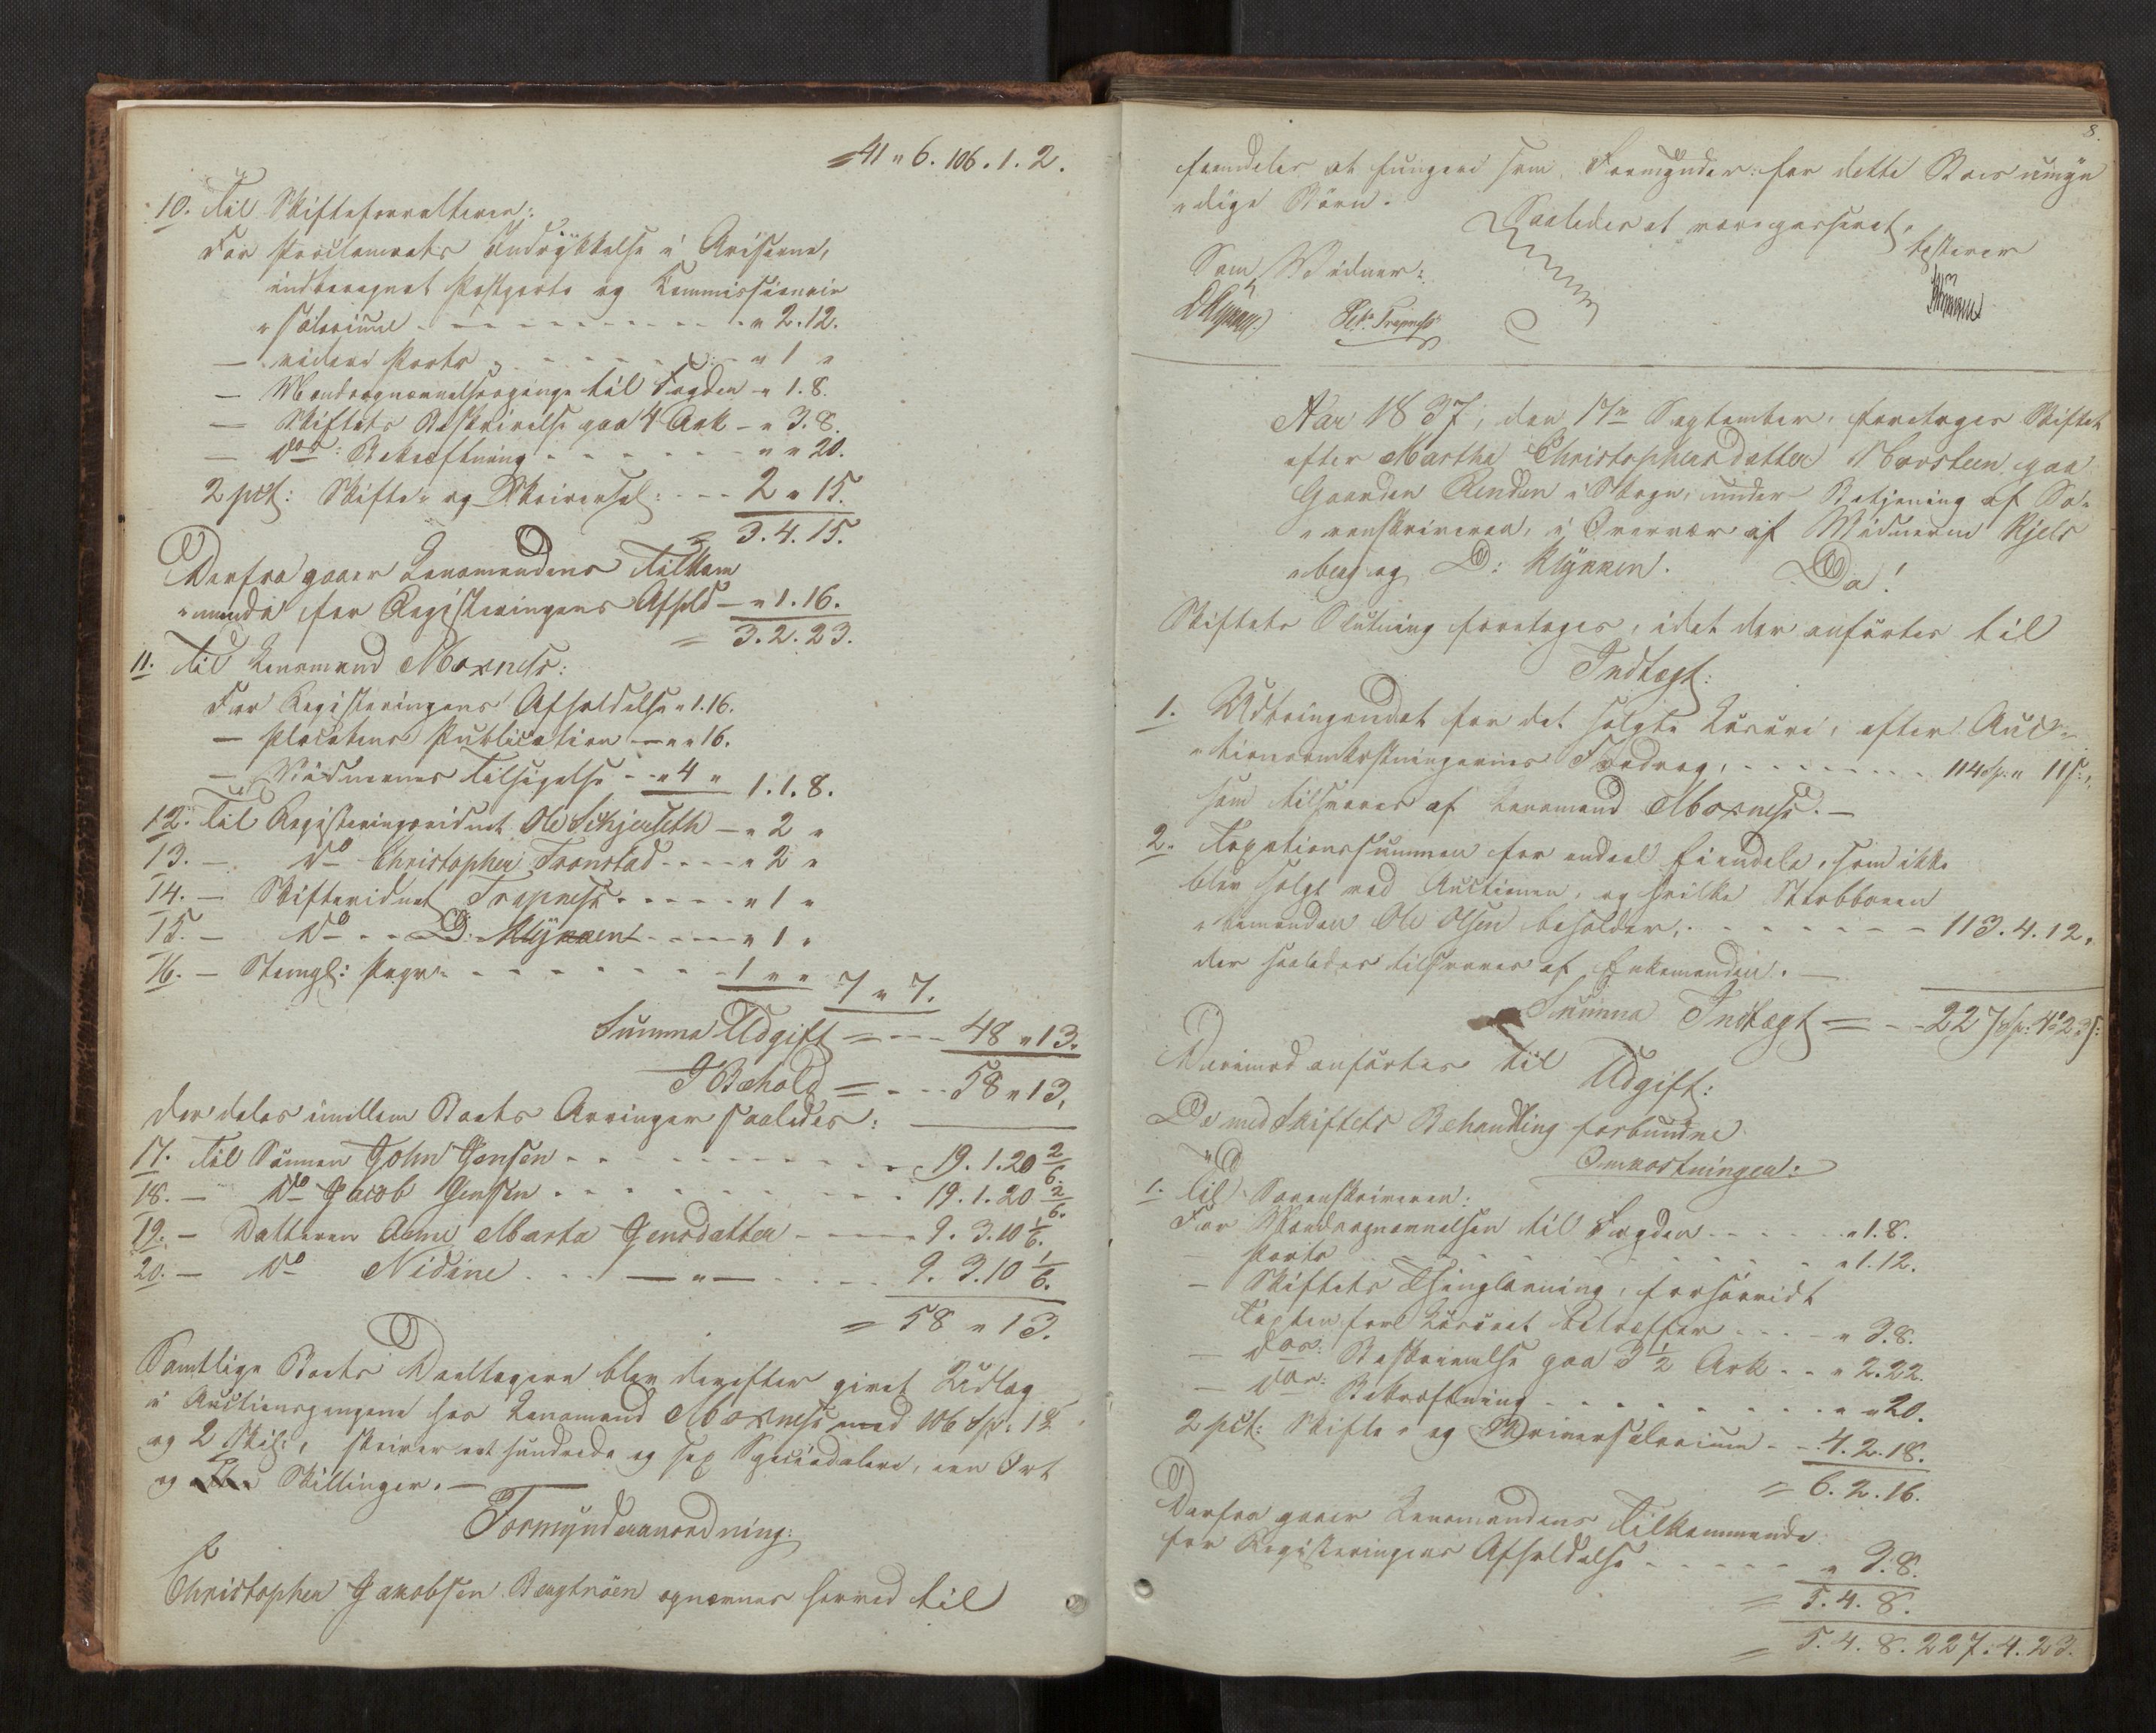 = 41 " 6. 106. 1. 2.
10. Til Skifteforvalteren:
For Proclamats Indrykkelse i Aviserne,
indberegnet Postporto og Commissionair
" salairium - - - " 2. 12.
— videre Porto - - - " 1 "
— Mændsopnævnelsespenge til Fogden - " 1. 8.
— Skiftets Beskrivelse paa 4 Ark - " 3. 8.
— Dos: Bekræftning - - - " " 20.
2 pct: Skifte- og Skriversal: - - - 2 " 15.
= 3. 4. 15.
Derfra gaaer Lensmandens Tilkom
" mende for Registeringens Afhold — " 1. 16.
= 3. 2. 23.
11. Til Lensmand Moxness:
For Registeringens Afholdelse " 1. 16.
— Placatens Publication — " " 16.
— Vidnernes Tilsigelse - - " 4 " 1. 1. 8.
12. Til Registeringsvidnet Ole Schjerseth — " 2 "
13. — Do Christopher Tronstad - - - - " 2 "
14. — Skiftevidnet Trapness - - - - - " 1 "
15. — Do - - D: Klykken - - - - " 1 "
16. — Stempl: Papir - - - - 1 " " 7 " 7.
Summa Udgift = - - - 48 " 13.
I Behold = - - - 58 " 13.
der deles imellem Boets Arvinger saaledes:
17. Til Sønnen John Jensen - - - 19. 1. 20 2/6.
18. — Do Jacob Jensen - - - 19. 1. 20 2/6.
19. — Datteren Ane Marta Jensdatter - - - 9. 3. 10 1/6.
20. — Do Nidine - - — " — - - 9. 3. 10 1/6.
= 58 " 13.
Samtlige Boets Deeltagere blev derefter givet Udlæg
i Auctionspengene hos Lensmand Moxness med 106 Sp: 1
og 2 Skil:, skriver eet hundrede og sex Speciedalere, een Ort
og Skillinger. —
Formynderanordning:
Christopher Jakobsen Bergtrøen opnævnes herved til
8.
fremdeles at fungere som Formynder for dette Boes umyn
" dige Børn.
Saaledes at være passeret,
testerer
Som Vidner:
D Klykken Trapness
Aar 1837, den 17n September, foretoges Skiftet
efter Martha Christophersdatter Norsteen paa
Gaarden Renden i Sogn, under Betjening af So-
" renskriveren, i Overvær af Vidnerne Kjels
" berg og D: Klykken. Da!
Skiftets Slutning foretoges, idet der anførtes til
Indtægt:
1. Udbringendet for det solgte Løsøre, efter Auc-
" tionsomkostningernes Fradrag, - - - 114 Sp: " 11 s:,
som tilsvares af Lensmand Moxness. —
2. Taxationssummen for endeel Eiendele, som ikke
blev solgt ved Auctionen, og hvilke Stervboen
" kemanden Ole Olsen beholder, - - - 113. 4. 12.
der saaledes tilsvares af Enkemanden. —
Summa Indtægt = - - 227 Sp: 4 23 s:
Derimod anførtes til
Udgift:
De med Skiftets Behandling forbundne
Omkostninger:
1. Til Sorenskriveren:
For Mændsopnævnelsen til Fogden - - - " 1. 8.
Porto - - - " 1. 12.
— Skiftets Thinglæsning, forsaavidt
Faste Løsøret betræffer - - - " 3. 8.
— Dos: Beskrivelse paa 3 1/2 Ark - - " 2. 22.
— Dos: Bekræftning - - - " " 20.
2 pct: Skifte- og Skriversalarium - - 4. 2. 18.
= 6. 2. 16.
Derfra gaaer Lensmandens Tilkommende
for Registeringens Afholdelse - - - " 3. 8.
= 5. 4. 8.
= 5. 4. 8. 227. 4. 23.